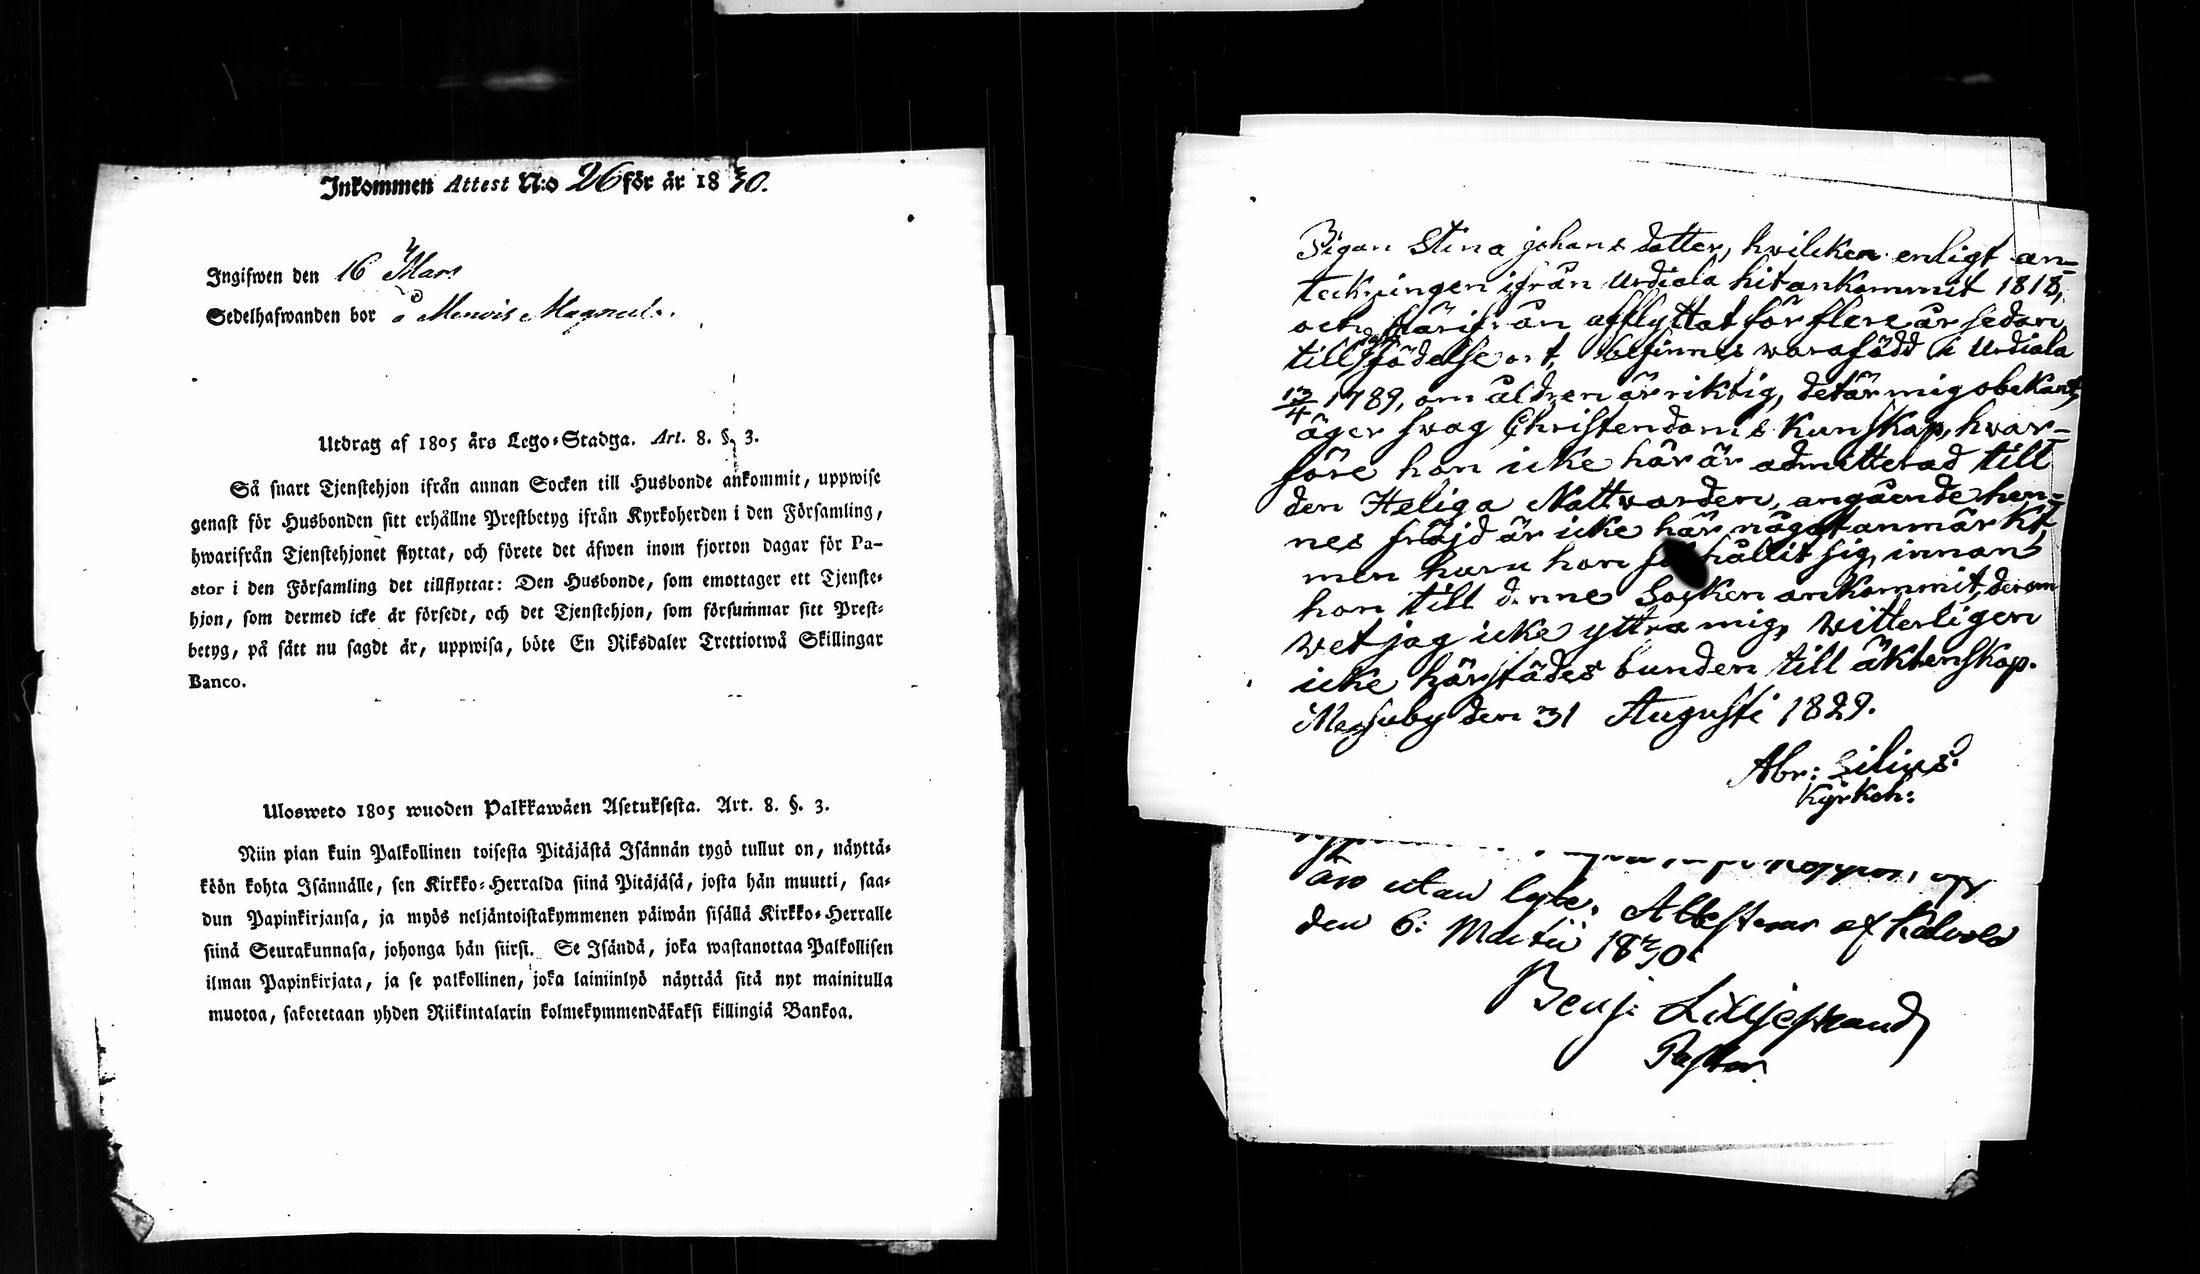 Inkommen Attest N:o 26 för år 1830.
Ingifwen den 16 Mars
Sedelhafwanden bor å
Utdrag af 1805 års Lego-Stadga. Art. 8. §. 3.
Så snart Tjenstehjon ifrån annan Socken till Husbonde ankommit, uppwise
genast för Husbonden sitt erhållne Prestbetyg ifrån Kyrkoherden i den Församling,
hwarifrån Tjenstehjonet flyttat, och förete det äfwen inom fjorton dagar för Pa-
stor i den Församling det tillflyttat: Den Husbonde, som emottager ett Tjenste-
hjon, som dermed icke är försedt, och det Tjenstehjon, som försummar sitt Prest-
betyg, på sätt nu sagdt är, uppwisa, böte En Riksdaler Trettiotwå Skillingar
Banco.
Ulosweto 1805 wuoden Palkkawäen Asetuksesta. Art. 8. §. 3.
Niin pian kuin Palkollinen toisesta Pitäjästä Isännän tygö tullut on, näyttä-
köön kohta Isännälle, sen Kirkko-Herralda siinä Pitäjäsä, josta hän muutti, saa-
dun Papinkirjansa, ja myös neljäntoistakymmenen päiwän sisällä Kirkko-Herralle
siinä Seurakunnasa, johonga hän siirsi. Se Isändä, joka wastanottaa Palkollisen
ilman Papinkirjata, ja se palkollinen, joka laiminlyö näyttää sitä nyt mainitulla
muotoa, sakotetaan yhden Riikintalarin kolmekymmendäkaksi killingiä Bankoa.
Pigan Stina Johans dotter, hwilcken enligt an-
teckningen ifrån Urdiala hit ankommit 1818,
och härifrån afflyttat för flere år sedan
till sin födelse ort, befinnes wara född i Urdiala
13/4 1789, om åldren är riktig, det är mig obekant,
äger swag Christendoms kunskap, hwar-
före hon icke här är admitterad till
den Heliga Nattwarden, angående hen-
nes fräjd är icke här något anmärkt,
men huru hon förhållit sig, innan
hon till denne Socken ankommit, derom
wet jag icke yttra mig, witterligen
icke härstädes bunden till äktenskap.
Messuby den 31 Augusti 1829.
Abr: Silius
Kyrkoh:
är utan lyte. Attesterar af Kalvola
den 6: Martii 1830.
Benj: Lilljestrand
Pastor.